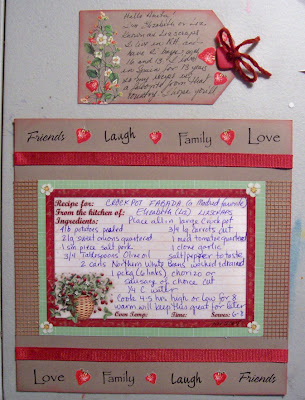 Hello Marta!
I'm Elizabeth or Liz
known as Lizscraps
I live in NH and
have 2 boys ages
16 and 13. I lived
in Spain for 13 years
so my recipe is
a favorite from that
country. I hope you'll
Friends Laugh Family Love
Recipe for: CROCKPOT FABADA (a Madrid favorite)
From the kitchen of: Elizabeth (Liz) LIZSCRAPS
Ingredients: Place all in large Crock pot
4 lb potatoes peeled 3/4 lg carrots cut
2 lg sweet onions quartered 1 med tomato quartered
1 sm piece salt pork 1 clove garlic
3/4 Tablespoons Olive oil salt/pepper to taste
2 cans Northern White Beans, washed/drained
1 pckg (6 links) chorizo or
sausage of choice cut
1/4 C water
Cook 4-5 hrs high or low for 8
warm will keep this great for later
Oven Temp: Time: Serves: 6-8
Love Family Laugh Friends